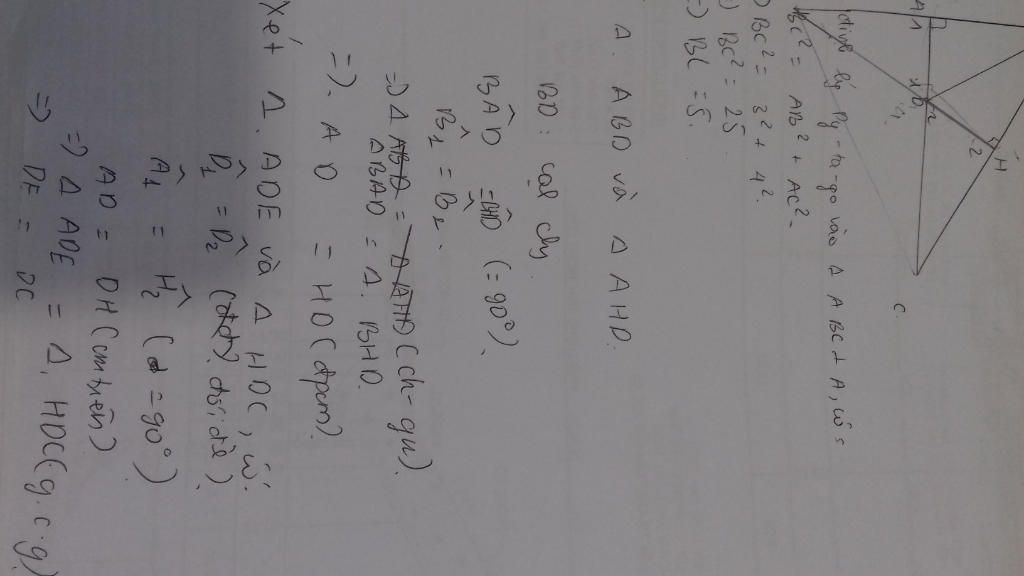 A
1
D
2
H
2
C
định lý Py-ta-go vào Δ ABC ⊥ A, có:
BC² = AB² + AC²
BC² = 3² + 4²
BC² = 25
=) BC = 5.
Δ. ABD và Δ AHD.
BD: cạnh chg
BÂD = BĤD (= 90°).
B̂₁ = B̂₂.
=) Δ ABD = Δ AHD (ch-gn).
ΔBAD = Δ. BHD
=). AD = HD (đpcm)
Xét Δ. ADE và Δ HDC, có:
D̂₁ = D̂₂ (đđ) đối đỉ).
Â₁ = Ĥ₂ (= 90°)
AD = DH (cm trên)
=) Δ ADE = Δ. HDC (g.c.g)
=) DE = DC